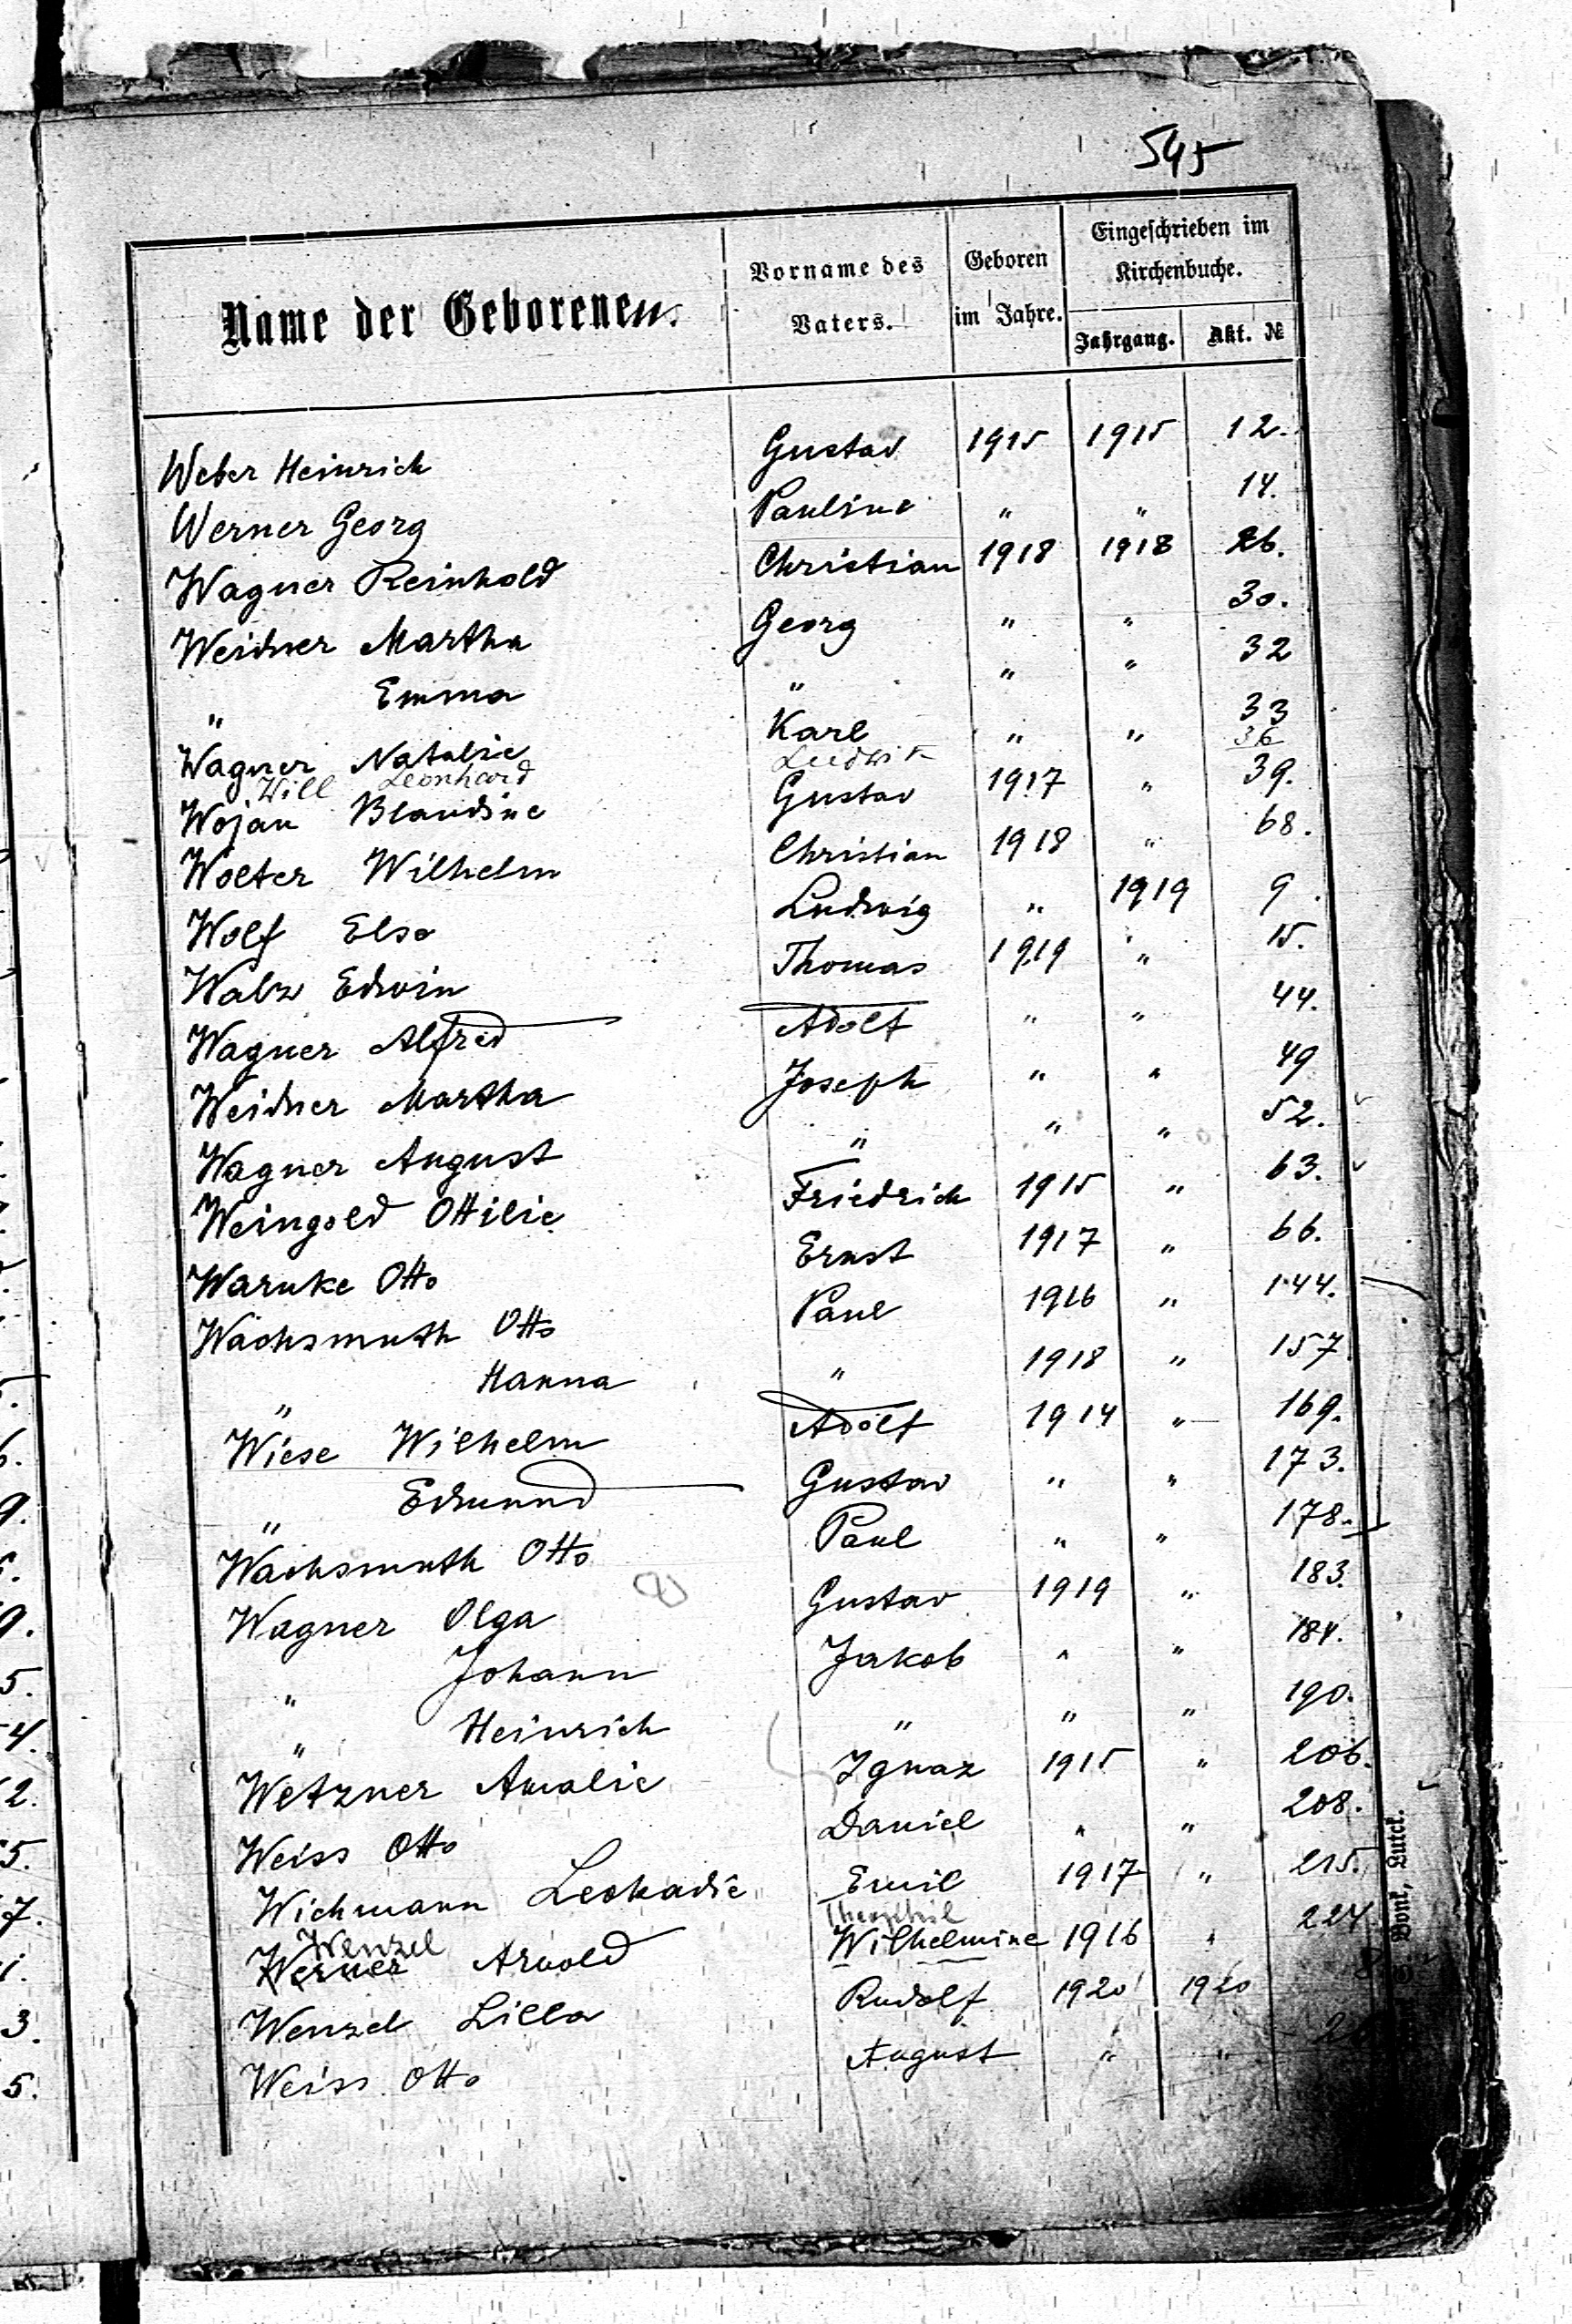 545
Name der Geborenen. Vorname des Vaters. Geboren im Jahre. Eingeschrieben im Kirchenbuche. Jahrgang. Akt. №
Weber Heinrich Gustav 1915 1915 12.
Werner Georg Pauline " " 14.
Wagner Reinhold Christian 1918 1918 26.
Weidner Martha Georg " " 30.
" Emma " " " 32
Wagner Natalie Karl " " 33
Will Leonhard Ludwik 36
Wojan Blandine Gustav 1917 " 39.
Wolter Wilhelm Christian 1918 " 68.
Wolf Else Ludwig " 1919 9.
Walz Edwin Thomas 1919 " 15.
Wagner Alfred Adolf " " 44.
Weidner Martha Joseph " " 49
Wagner August " " " 52.
Weingold Ottilie Friedrich 1915 " 63.
Warnke Otto Ernst 1917 " 66.
Wachsmuth Otto Paul 1916 " 144.
" Hanna " 1918 " 157
Wiese Wilhelm Adolf 1914 " 169.
" Edmund Gustav " " 173.
Wachsmuth Otto Paul " " 178.
Wagner Olga Gustav 1919 " 183.
" Johann Jakob " " 184.
" Heinrich " " " 190.
Wetzner Amalie Ignaz 1915 " 206.
Weiss Otto Daniel " " 208.
Wichmann Leokadie Emil 1917 " 215.
Wenzel Theophil
Werner Arnold Wilhelmine 1916 " 224
Wenzel Lilla Rudolf 1920 1920 8
Weiss Otto August " "
Bonk, Lutck.